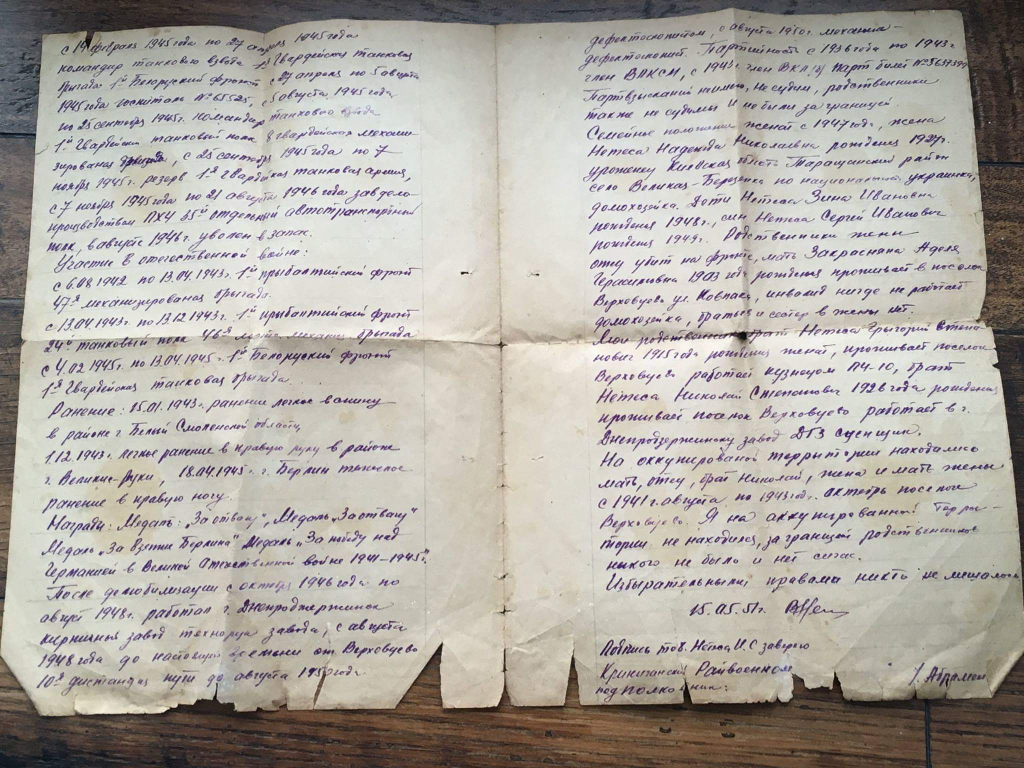 с 19 февраля 1945 года по 27 апреля 1945 года
командир танкового взвода 1ª Гвардейская танковая
бригада 1ª Белоруский фронт с 27 апреля по 5 августа
1945 года госпиталь № 65525, с 5 августа 1945 года
по 25 сентября 1945 г. командир танкового взвода
1й Гвардейский танковый полк 8 гвардейская механи
зированая бригада, с 25 сентября 1945 года по 7
ноября 1945 г. резерв 1ª Гвардейская танковая армия,
с 7 ноября 1945 года по 21 августа 1946 года зав дело-
производством ПХЧ 35й отдельный автотранспортный
полк, в августе 1946 г. уволен в запас.
Участие в отечественной войне:
с 6.08.1942 по 13.04.1943 г. 1й прибалтийский фронт
47ª механизированая брыгада.
с 13.04.1943 г. по 13.12.1943 г. 1й прыбалтийский фронт
24й танковый полк 46ª механиз брыгада
с 4.02.1945 г. по 13.04.1945 г. 1й Белоруский фронт
1ª Гвардейская танковая брыгада.
Ранение: 15.01.1943 г. ранение легкое в спину
в районе г. Белый Смоленской области,
1.12.1943 г. легкое ранение в правую руку в районе
г. Великие-Луки, 18.04.1945 г. г. Берлин тяжелое
ранение в правую ногу.
Награды: Медаль: „За отвагу", Медаль „За отвагу"
Медаль „За взятие Берлина" Медаль „За победу над
Германией в Великой Отечественной войне 1941–1945 г."
После демобилизации с октября 1946 года по
август 1948 г. работал г. Днепродзержинск
кирпичный завод завода, с августа
1948 года до настоящего времени от Верховцево
10ª дистанция пути до августа 1950 года.
дефектоскопистом, с августа 1950 г. механик-
дефектоскопист. Партийность с 1936 года по 1943 г.
член ВЛКСМ, с 1943 г. член ВКП/б/ парт билет № 5657599
Партвзысканий не имею, не судим, родственники
также не судимы и не были за границей.
Семейное положение женат с 1947 года, жена
Нетеса Надежда Николаевна рождения 1927 г.
уроженец Киевская область Таращанский район
село Великая-Березянка по национальности украинка,
домохозяйка. Дети Нетеса Зина Ивановна
рождения 1948 г., сын Нетеса Сергей Иванович
рождения 1949 г. Родственники жены
отец убит на фронте, мать Закроснана Аделя
Герасимовна 1903 года рождения проживает в поселок
Верховцево ул. Ковпака, инвалид нигде не работает
домохозяйка, братьев и сестер в жены нет.
Мои родственники: брат Нетеса Григорий Степа-
нович 1915 года рождения женат, проживает поселок
Верховцево работает кузнецом ПЧ-10, брат
Нетеса Николай Степанович 1926 года рождения
проживает поселок Верховцево работает в г.
Днепродзержинску завод ДВЗ сцепщик.
На оккупированой террытории находились
мать, отец, брат Николай, жена и мать жены
с 1941 г. августа по 1943 год. октябрь поселок
Верховцево. Я на аккупированной терри-
тории не находился, за границей родственников
никого не было и нет сейчас.
Избырательными правами никто не лишалось
15.05.51 г.
Подпись тов. Нетеса И.С заверяю
Криничанский Райвоенком
подполковник: /. Абрамен